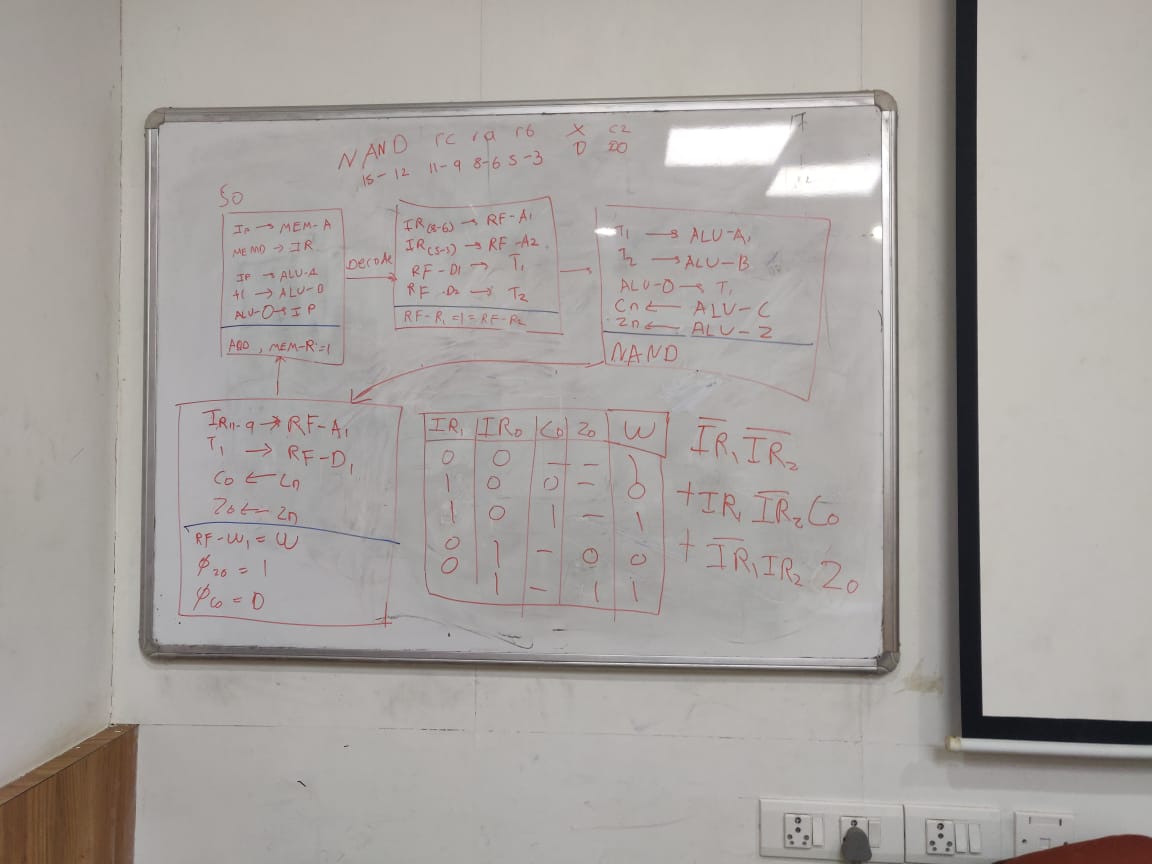 NAND rc ra rb X CZ
15-12 11-9 8-6 5-3 0 00
S0
IP → MEM-A
MEMD → IR
IP → ALU-A
+1 → ALU-B
ALU-O → IP
ADD, MEM-R=1
Decode
IR(8-6) → RF-A1
IR(5-3) → RF-A2
RF-D1 → T1
RF-D2 → T2
RF-R1=1=RF-R2
T1 → ALU-A
T2 → ALU-B
ALU-O → T1
Cn ← ALU-C
Zn ← ALU-Z
NAND
IR11-9 → RF-A1
T1 → RF-D1
C0 ← Cn
Z0 ← Zn
RF-W1 = W
φZ0 = 1
φC0 = 0
IR1 IR0 C0 Z0 W
0 0 - - 1
1 0 0 - 0
1 0 1 - 1
0 1 - 0 0
0 1 - 1 1
I̅R̅1 I̅R̅2
+ IR1 I̅R̅2 C0
+ I̅R̅1 IR2 Z0